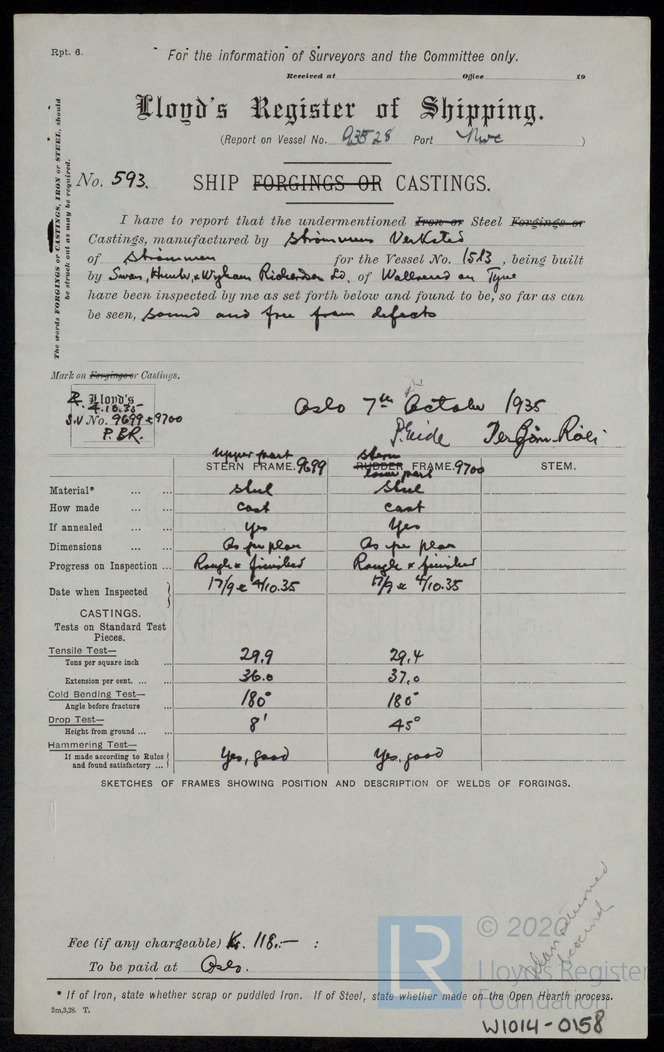 Rpt. 6.
For the information of Surveyors and the Committee only.
Received at Office 19
Lloyd's Register of Shipping.
(Report on Vessel No. 93528 Port Nwc )
The words FORGINGS or CASTINGS, IRON or STEEL, should
be struck out as may be required.
No. 593. SHIP FORGINGS OR CASTINGS.
I have to report that the undermentioned Iron or Steel Forgings or
Castings, manufactured by Strömmens Verksted
of Strömmen for the Vessel No. 1513, being built
by Swan, Hunter, & Wigham Richardson Ld, of Wallsend on Tyne
have been inspected by me as set forth below and found to be, so far as can
be seen, sound and free from defects
Mark on Forgings or Castings.
Lloyd's
4.10.35
S.V No. 9699 & 9700
P. ER.
Oslo 7th October 1935
P. Eide
upper part stern
STERN FRAME. 9699 RUDDER FRAME. 9700 STEM.
lower part
Material* ... ... steel steel
How made ... ... cast cast
If annealed ... ... Yes Yes
Dimensions ... ... As per plan As per plan
Progress on Inspection ... Rough & finished Rough & finished
Date when Inspected 17/9 & 4/10.35 17/9 & 4/10.35
CASTINGS.
Tests on Standard Test
Pieces.
Tensile Test—
Tons per square inch ... 29.9 29.4
Extension per cent. ... ... 36.0 37.0
Cold Bending Test—
Angle before fracture 180° 180°
Drop Test—
Height from ground ... ... 8' 45°
Hammering Test—
If made according to Rules Yes, good Yes, good
and found satisfactory ...
SKETCHES OF FRAMES SHOWING POSITION AND DESCRIPTION OF WELDS OF FORGINGS.
Fee (if any chargeable) Kr. 118.— :
To be paid at Oslo.
© 2020
Lloyd's Register
Foundation
* If of Iron, state whether scrap or puddled Iron. If of Steel, state whether made on the Open Hearth process.
3m,3,28. T.
W1014-0158